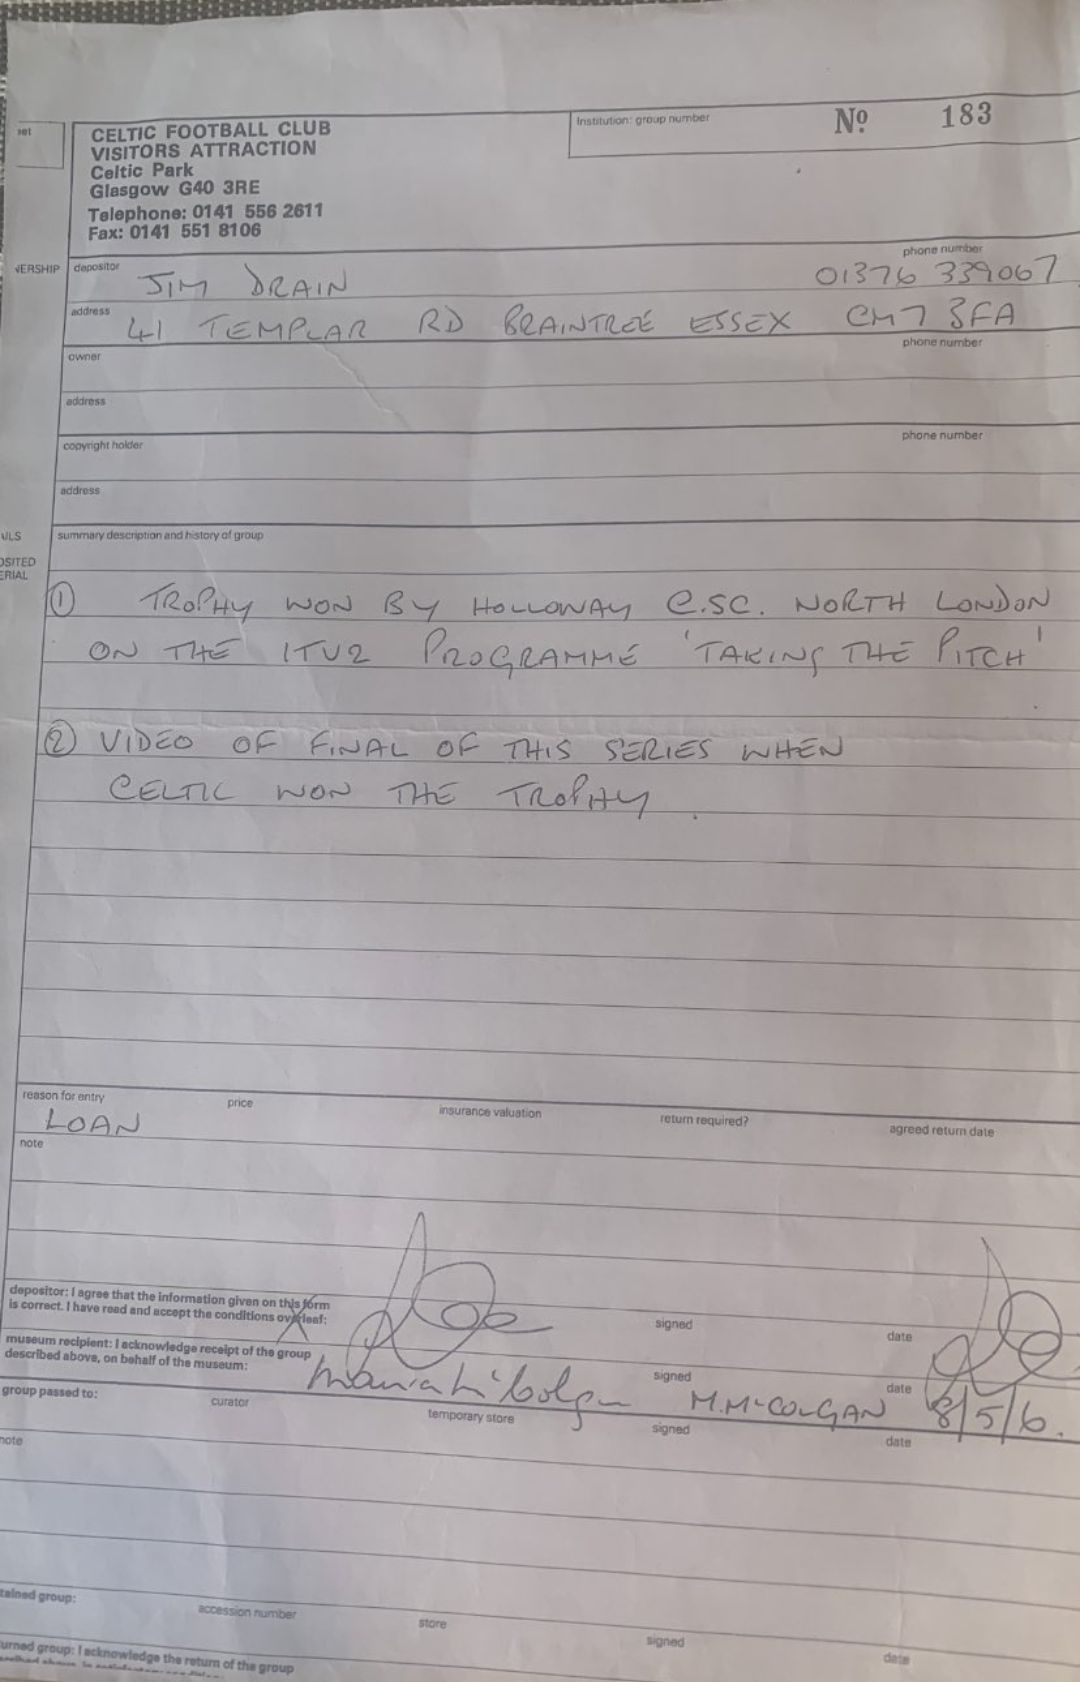 set
CELTIC FOOTBALL CLUB
VISITORS ATTRACTION
Celtic Park
Glasgow G40 3RE
Telephone: 0141 556 2611
Fax: 0141 551 8106
Institution: group number
Nº 183
NERSHIP
depositor JIM DRAIN
phone number 01376 339067
address 41 TEMPLAR RD BRAINTREE ESSEX CM7 3FA
owner
phone number
address
copyright holder
phone number
address
ULS
OSITED
ERIAL
summary description and history of group
① TROPHY WON BY HOLLOWAY C.SC. NORTH LONDON
ON THE ITV2 PROGRAMME 'TAKING THE PITCH'
② VIDEO OF FINAL OF THIS SERIES WHEN
CELTIC WON THE TROPHY.
reason for entry LOAN
price
insurance valuation
return required?
agreed return date
note
depositor: I agree that the information given on this form
is correct. I have read and accept the conditions overleaf:
signed
date
museum recipient: I acknowledge receipt of the group
described above, on behalf of the museum:
signed M. McCOLGAN
date 8/5/6.
group passed to:
curator
temporary store
signed
date
note
tained group:
accession number
store
signed
date
urned group: I acknowledge the return of the group